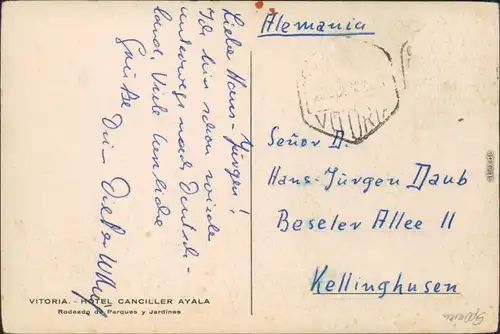 Liebe Hans-Jürgen!
Ich bin schon wieder
unterwegs nach Deutsch-
land. Viele herzliche
Grüße Dein Dieter
Alemania
VITORIA
Señor D.
Hans-Jürgen Daub
Beseler Allee 11
Kellinghusen
VITORIA. - HOTEL CANCILLER AYALA
Rodeado de Parques y Jardines
Spanien